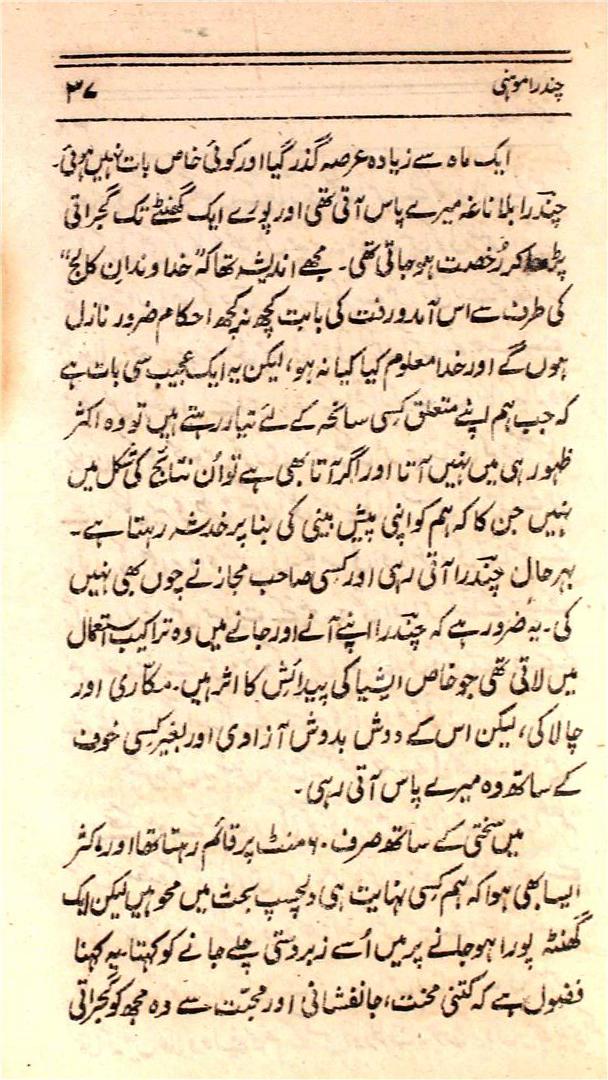 چندرا موہنی
۳۷
ایک ماہ سے زیادہ عرصہ گذر گیا اور کوئی خاص بات نہیں ہوئی۔
چندرا بلا ناغہ میرے پاس آتی تھی اور پورے ایک گھنٹے تک گجراتی
پڑھا کر رُخصت ہو جاتی تھی۔ مجھے اندیشہ تھا کہ "خداوندانِ کالج"
کی طرف سے اس آمدورفت کی بابت کچھ نہ کچھ احکام ضرور نازل
ہوں گے اور خدا معلوم کیا کیا نہ ہو، لیکن یہ ایک عجیب سی بات ہے
کہ جب ہم اپنے متعلق کسی سانحہ کے لئے تیار رہتے ہیں تو وہ اکثر
ظہور ہی میں نہیں آتا اور اگر آتا بھی ہے تو اُن نتائج کی شکل میں
نہیں جن کا کہ ہم کو اپنی پیش بینی کی بنا پر خدشہ رہتا ہے۔
بہر حال چندرا آتی رہی اور کسی صاحب مجاز نے چوں بھی نہیں
کی۔ یہ ضرور ہے کہ چندرا اپنے آنے اور جانے میں وہ تراکیب استعمال
میں لاتی تھی جو خاص ایشیا کی پیدائش کا اثر ہیں۔ مکاری اور
چالاکی، لیکن اس کے دوش بدوش آزادی اور بغیر کسی خوف
کے ساتھ وہ میرے پاس آتی رہی۔
میں سختی کے ساتھ صرف ۶۰ منٹ پر قائم رہتا تھا اور اکثر
ایسا بھی ہوا کہ ہم کسی نہایت ہی دلچسپ بحث میں محو ہیں لیکن ایک
گھنٹہ پورا ہو جانے پر میں اُسے زبردستی چلے جانے کو کہتا۔ یہ کہنا
فضول ہے کہ کتنی محنت، جانفشانی اور محبت سے وہ مجھ کو گجراتی